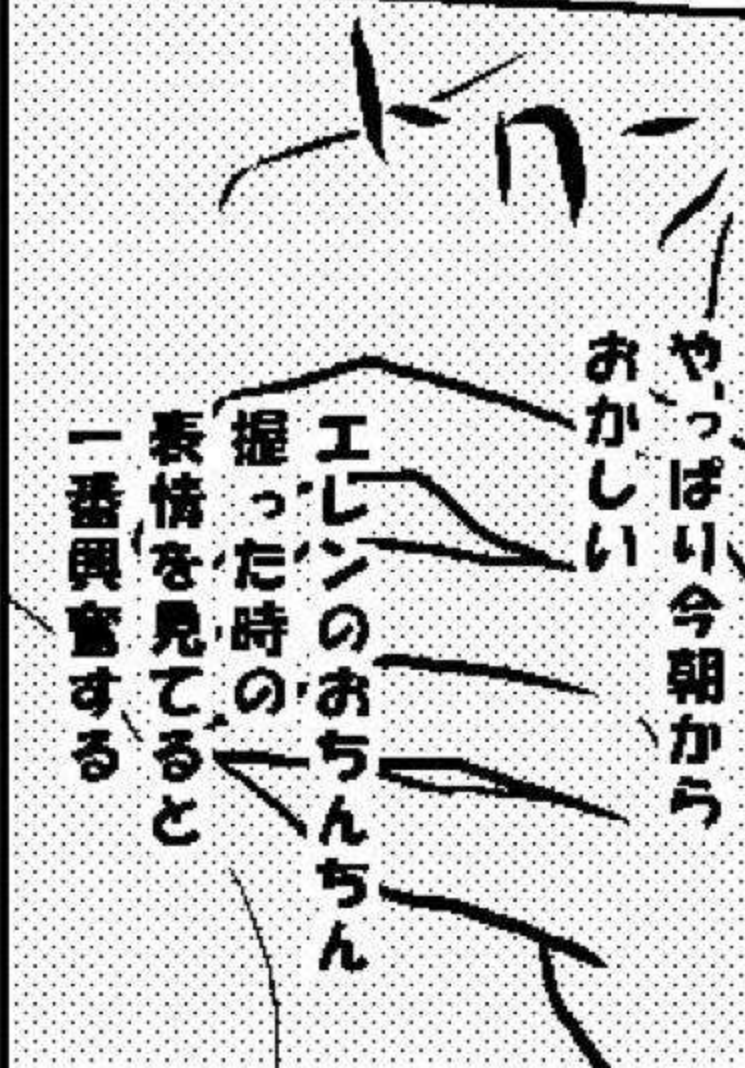 やっぱり今朝から
おかしい
エレンのおちんちん
握った時の
表情を見てると
一番興奮する